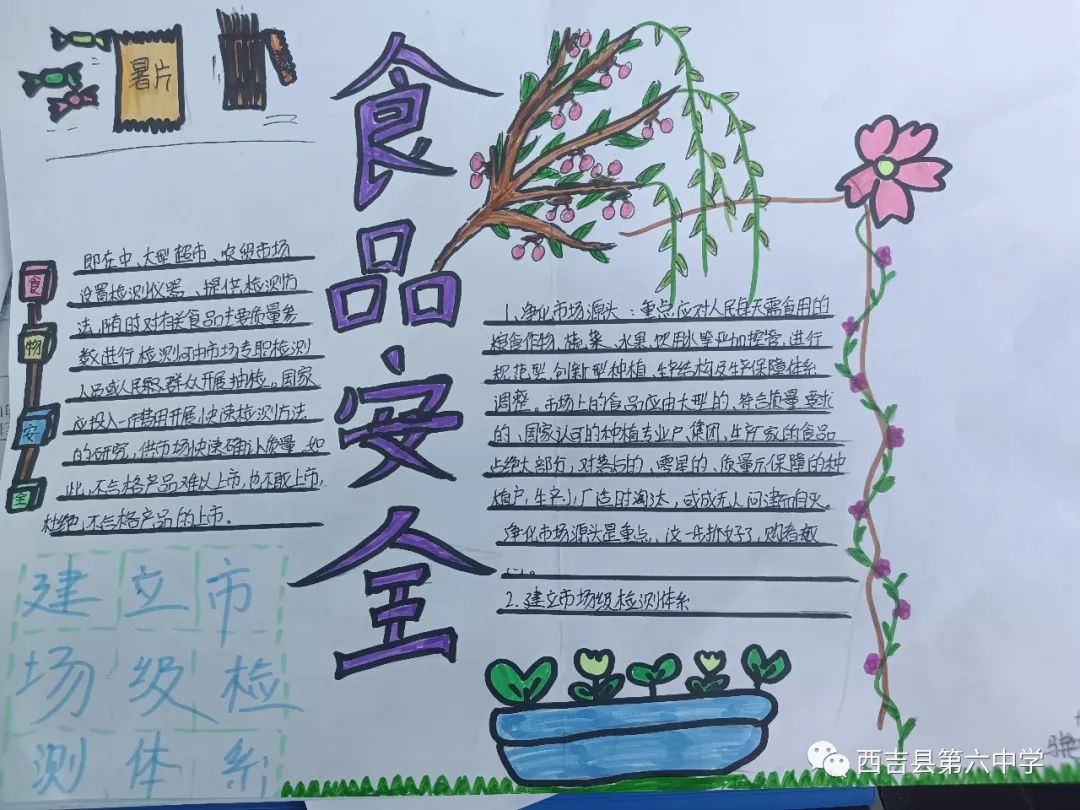 暑片
食品安全
食
物
安
全
即在中、大型超市、农贸市场
设置检测仪器、提供检测方
法,随时对有关食品主要质量参
数进行检测,可由市场专职检测
人员或人民群众开展抽检。国家
应投入一定费用开展快速检测方法
的研究,供市场快速确认质量,如
此,不合格产品难以上市,也不敢上市,
杜绝不合格产品的上市。
建立市
场级检
测体系
1、净化市场源头:重点应对人民每天需食用的
粮食作物、蔬菜、水果、饮用水等严加控管,进行
规范型、创新型种植、生产结构及生产保障体系
调整。市场上的食品应由大型的、符合质量要求
的、国家认可的种植专业户、集团、生产厂家的食品
占绝大部分,对落后的、零星的、质量无保障的种
植户,生产小厂适时淘汰,或成无人问津而自灭。
净化市场源头是重点,这一步抓好了,则看
2.建立市场级检测体系
西吉县第六中学